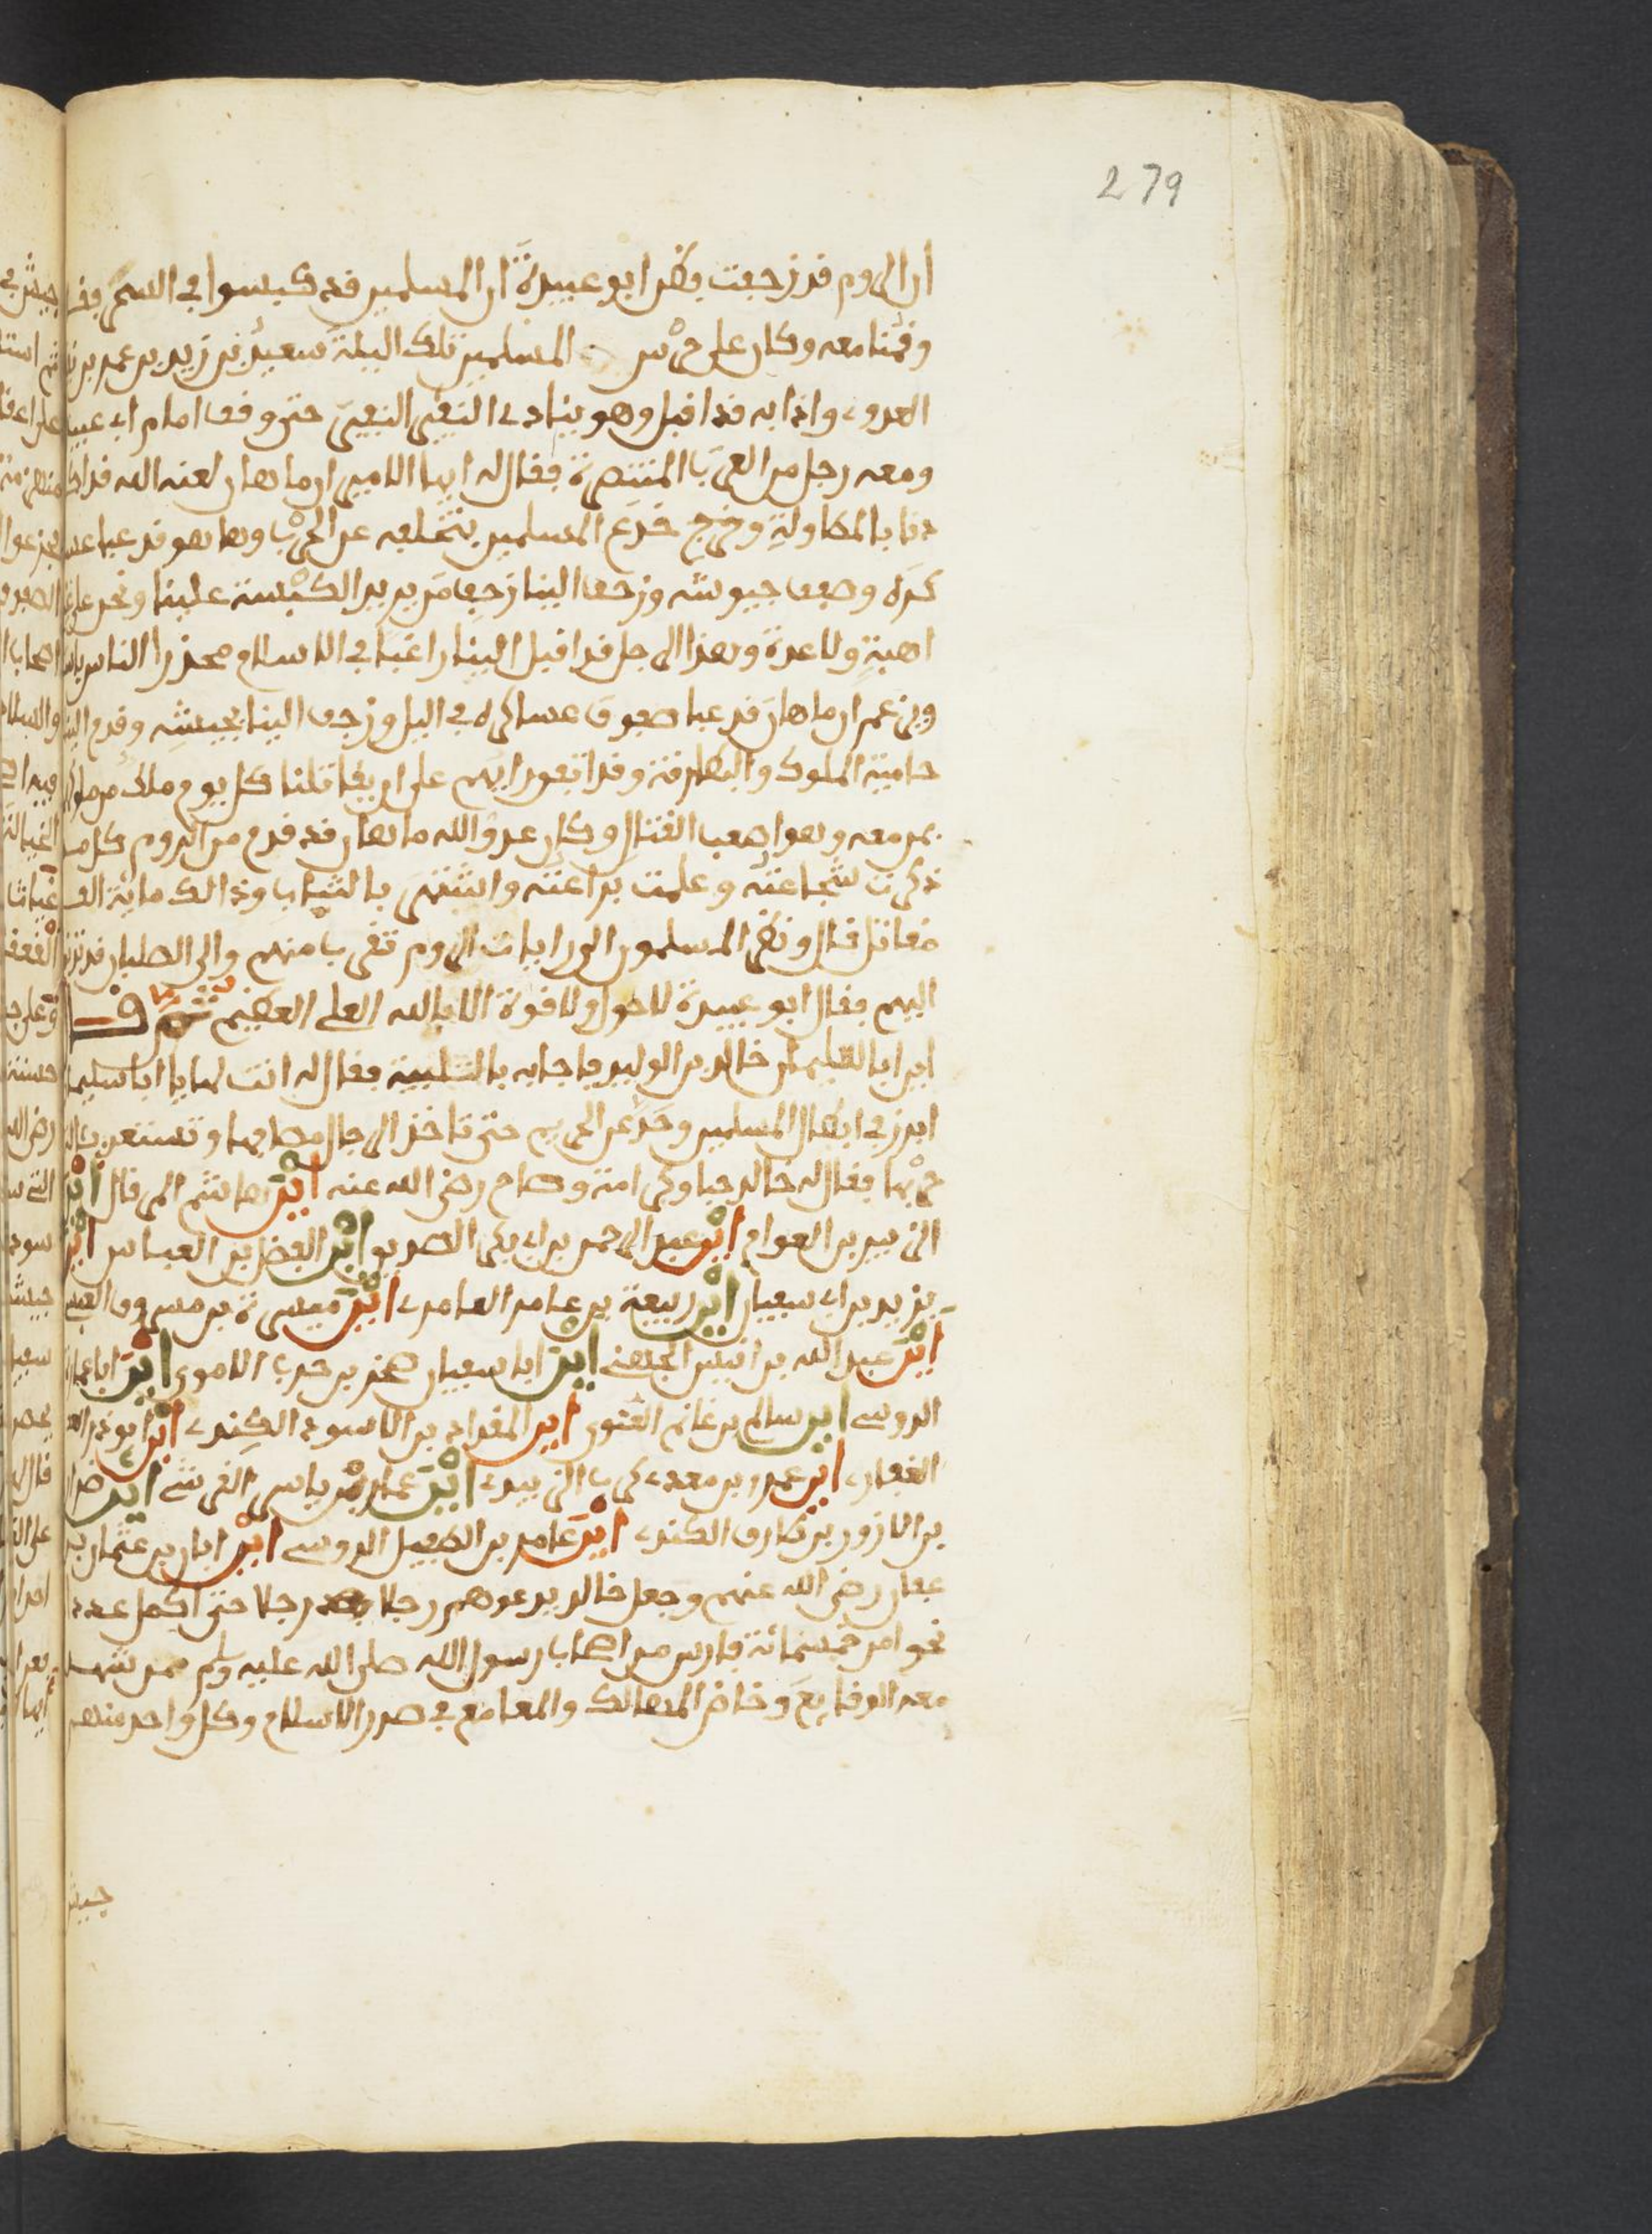 279
ان الروم قد زحفت فظن ابو عبيدة ان المسلمين قد كبسوا في السحر
وقمنا معه وكان على حرس المسلمين تلك اليلة سعيد بن زيد بن عمر بن
العدوي واذا به قد اقبل وهو ينادي النفير النفير حتى وقف امام ابي عبيدة
ومعه رجل من العرب المتنصرة فقال له ايها الامير ان ماهان لعنه الله قد
بالمكاولة وخرج خدع المسلمين بتخلفه عن الحرب وها هو قد عبا
وصف جيوشه وزحف الينا زحف من يريد الكبسة علينا ونحن على
اهبة ولا عدة وهذا الرجل قد اقبل الينا راغبا في الاسلام محذرا الناس
ويزعم ان ماهان قد عبا صفوف عساكره في اليل وزحف الينا بجيشه وقدم
حامية الملوك والبطارقة وقد اتفق رايهم على ان يقاتلنا كل يوم ملك من ملوك
بمن معه وهو اصعب القتال وكان عدو الله ماهان قد قدم من الروم كل من
ذكرت شجاعته وعلمت براعته واشتهر بالثبات وذالك ماية الف
مقاتل قال ونظر المسلمون الى رايات الروم تقرب منهم والى الصلبان قد
اليهم فقال ابو عبيدة لا حول ولا قوة الا بالله العلي العظيم ثم قال
اين ابا سليمان خالد بن الوليد فاجابه بالتلبية فقال له انت لها يا ابا سليمان
ابرز في ابطال المسلمين وصد عن الحريم حتى تاخذ الرجال مصافها وتستعد
فقال له خالد حبا وكرامة وصاح رضي الله عنه اين هاشم المرقال اين
الزبير بن العوام اين عبد الرحمن بن ابي بكر الصديق اين الفضل بن العباس اين
يزيد بن ابي سفيان اين ربيعة بن عامر العامري اين ميسرة بن مسروق العبسي
اين عبد الله بن انيس الجهني اين ابا سفيان صخر بن حرب الاموي اين ابا
الدوسي اين سالم بن غانم الغنوي اين المقداد بن الاسود الكندي اين ابو ذر
الغفاري اين عمرو بن معدي كرب الزبيدي اين عمار بن ياسر القرشي اين ضرار
بن الازور بن طارق الكندي اين عامر بن الطفيل الدوسي اين ابان بن عثمان بن
عفان رضي الله عنهم وجعل خالد يدعوهم رجلا بعد رجلا حتى اكمل عدد
نحوا من خمسمائة فارس من اصحاب رسول الله صلى الله عليه وسلم ممن شهد
معه الوقايع وخاض المهالك والمعامع في صدر الاسلام وكل واحد منهم
جيش